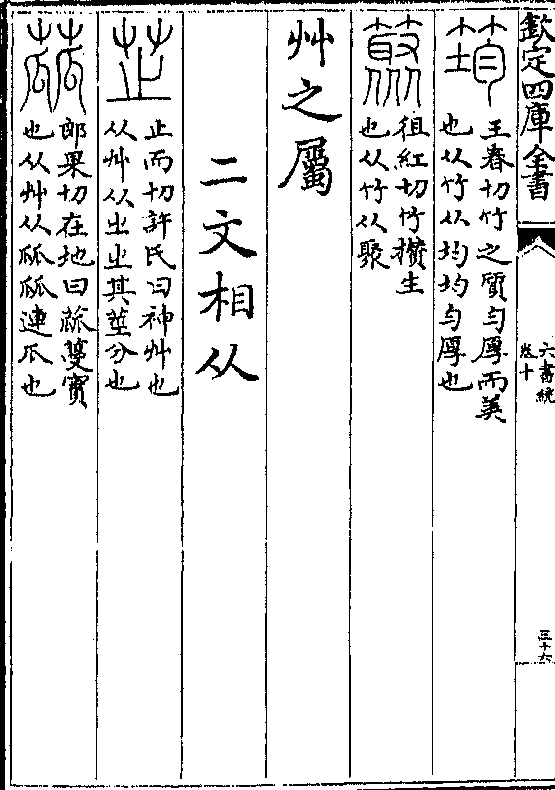 欽定四庫全書
六書統
卷十
三十六
王春切竹之質勻厚而美
也从竹从均均勻厚也
徂紅切竹攢生
也从竹从聚
艸之屬
二文相从
止而切許氏曰神艸也
从艸从㞢㞢其莖分也
蓏
郎果切在地曰蓏蔓實
也从艸从㼌㼌連瓜也